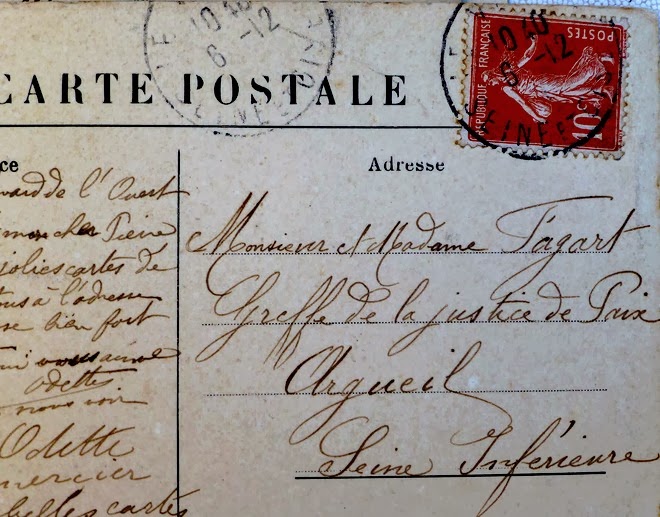 CARTE POSTALE
10 40
6 -12
RÉPUBLIQUE FRANÇAISE
POSTES
10c
10 40
6 -12
ce
Adresse
de l'Ouest
mon cher Pierre
jolies cartes de
à l'adresse
se bien fort
vous aime
Odette
nous voir
Odette
mercier
belles cartes
Monsieur et Madame Fagart
Greffe de la justice de Paix
Argueil
Seine Inférieure